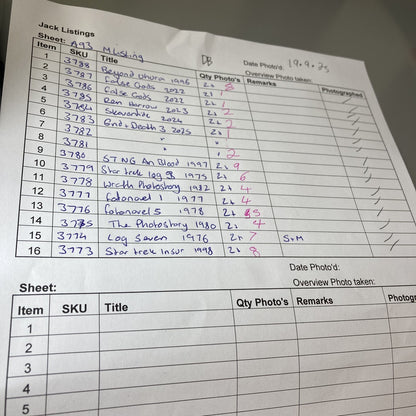 Jack Listings
Sheet: A93 MListing DB Date Photo'd: 19.9.25
Overview Photo taken:
Item SKU Title Qty Photo's Remarks Photographed
1 3788 Beyond Uhura 1996 2+ 8
2 3787 False Gods 2022 2+ 1
3 3786 False Gods 2022 2+ 1
4 3785 Ran Barrow 2023 2+ 2
5 3784 2024 2+ 2
6 3783 End + Death 3 2025 2+
7 3782 " " 1
8 3781 " "
9 3780 " " 2
10 3779 ST NG An Blood 1997 2+ 9
11 3778 Star trek log 3 1975 2+ 6
12 3777 Wrath Photostory 1982 2+ 4
13 3776 fotonovel 1 1977 2+ 4
14 3775 fotonovel 5 1978 2+ 5
15 3774 The Photostory 1980 2+ 4
16 3773 Log Seven 1976 2+ 7 S+M
Star trek Insur 1998 2+ 8
Date Photo'd:
Sheet: Overview Photo taken:
Item SKU Title Qty Photo's Remarks Photogr
1
2
3
4
5